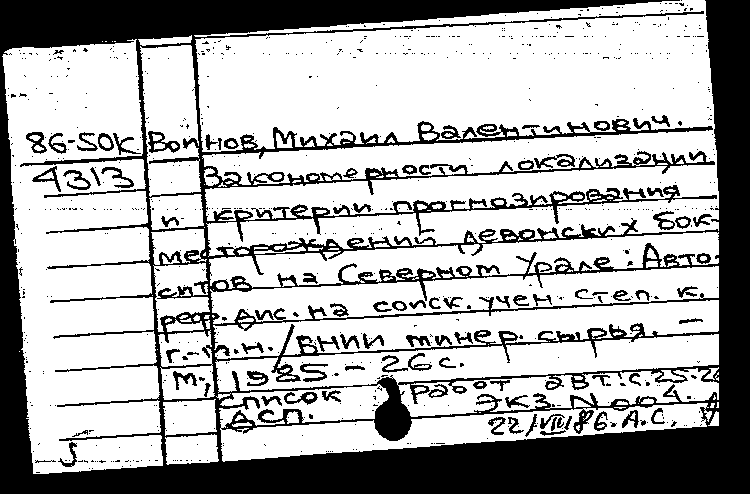 86-50к Воинов, Михаил Валентинович.
4313 Закономерности локализации
и критерии прогнозирования
месторождений девонских бок-
ситов на Северном Урале: Авто-
реф. дис. на соиск. учен. степ. к.
г.-м.н. / ВНИИ минер. сырья. —
М., 1985. - 26 с.
Список работ авт.: с. 25-26
ДСП. Экз. N 004.
22/VIII 86. А.С.